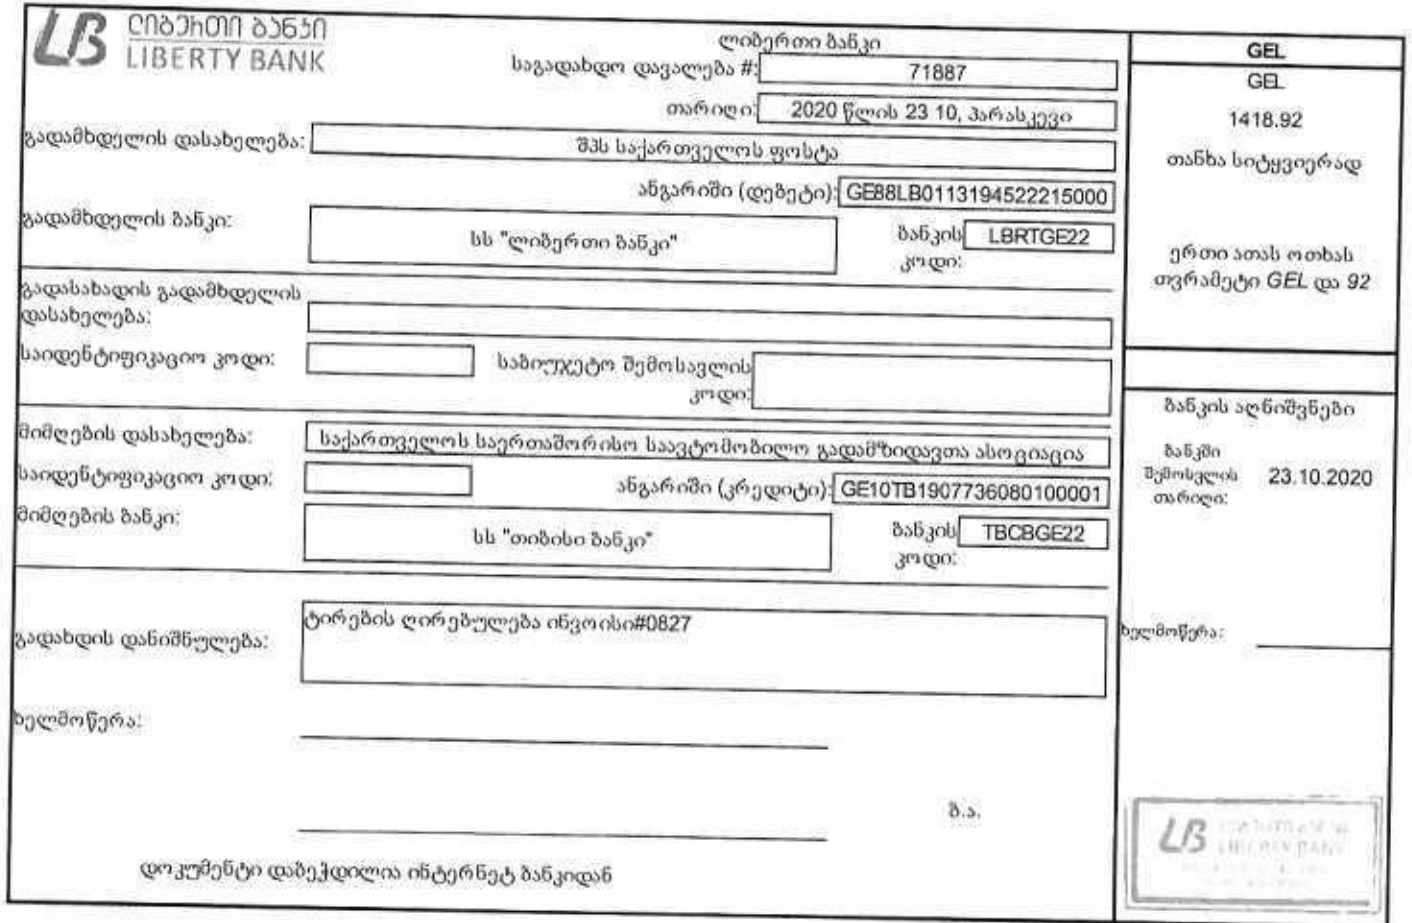 ლიბერთი ბანკი
LIBERTY BANK
ლიბერთი ბანკი
საგადახდო დავალება #: 71887
თარიღი: 2020 წლის 23 10, პარასკევი
გადამხდელის დასახელება: შპს საქართველოს ფოსტა
ანგარიში (დებეტი): GE88LB0113194522215000
გადამხდელის ბანკი: სს "ლიბერთი ბანკი" ბანკის კოდი: LBRTGE22
გადასახადის გადამხდელის
დასახელება:
საიდენტიფიკაციო კოდი: საბიუჯეტო შემოსავლის
კოდი:
მიმღების დასახელება: საქართველოს საერთაშორისო საავტომობილო გადამზიდავთა ასოციაცია
საიდენტიფიკაციო კოდი: ანგარიში (კრედიტი): GE10TB1907736080100001
მიმღების ბანკი: სს "თიბისი ბანკი" ბანკის კოდი: TBCBGE22
გადახდის დანიშნულება: ტირების ღირებულება ინვოისი#0827
ხელმოწერა:
ბ.ა.
დოკუმენტი დაბეჭდილია ინტერნეტ ბანკიდან
GEL
GEL
1418.92
თანხა სიტყვიერად
ერთი ათას ოთხას
თვრამეტი GEL და 92
ბანკის აღნიშვნები
ბანკში
შემოსვლის
თარიღი: 23.10.2020
ხელმოწერა:
LIBERTY BANK